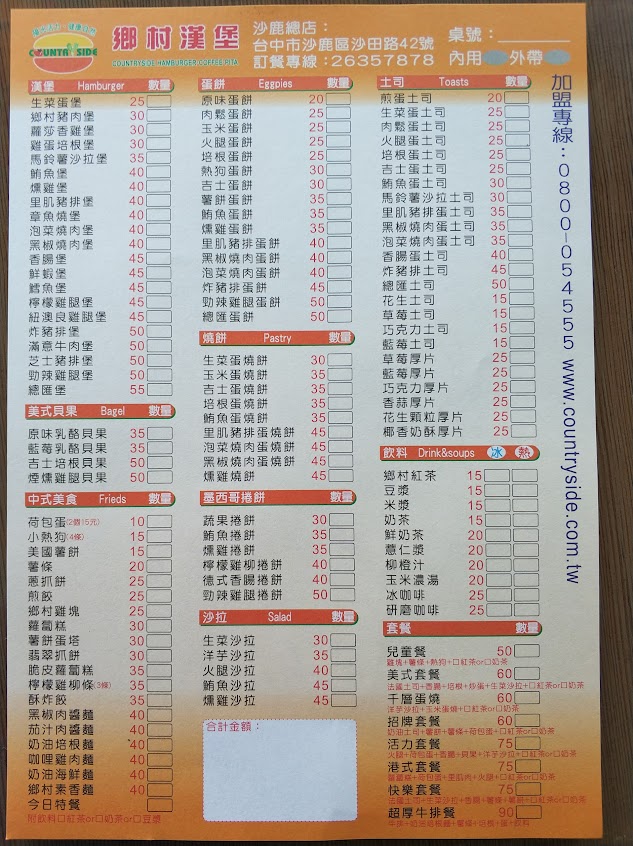 COUNTRYSIDE
鄉村漢堡
COUNTRYSIDE HAMBURGER COFFEE PITA
沙鹿總店：
台中市沙鹿區沙田路42號
訂餐專線：26357878
桌號：
內用 外帶
加盟專線：0800-054555 www.countryside.com.tw
漢堡 Hamburger 數量
生菜蛋堡 25
鄉村豬肉堡 30
蘿莎香雞堡 30
雞蛋培根堡 30
馬鈴薯沙拉堡 35
鮪魚堡 40
燻雞堡 40
里肌豬排堡 40
章魚燒堡 40
泡菜燒肉堡 40
黑椒燒肉堡 40
香腸堡 45
鮮蝦堡 45
鱈魚堡 45
檸檬雞腿堡 45
紐澳良雞腿堡 45
炸豬排堡 50
滿意牛肉堡 50
芝士豬排堡 50
勁辣雞腿堡 50
總匯堡 55
美式貝果 Bagel 數量
原味乳酪貝果 35
藍莓乳酪貝果 35
吉士培根貝果 50
煙燻雞貝果 50
中式美食 Frieds 數量
荷包蛋(2個15元) 10
小熱狗(4條) 15
美國薯餅 15
薯條 20
蔥抓餅 25
煎餃 25
鄉村雞塊 25
蘿蔔糕 30
薯餅蛋塔 30
翡翠抓餅 30
脆皮蘿蔔糕 35
檸檬雞柳條(3條) 35
酥炸餃 35
黑椒肉醬麵 40
茄汁肉醬麵 40
奶油培根麵 40
咖哩雞肉麵 40
奶油海鮮麵 40
鄉村素香麵 40
今日特餐
附飲料口紅茶or口奶茶or口豆漿
蛋餅 Eggpies 數量
原味蛋餅 20
肉鬆蛋餅 25
玉米蛋餅 25
火腿蛋餅 25
培根蛋餅 25
熱狗蛋餅 30
吉士蛋餅 30
薯餅蛋餅 35
鮪魚蛋餅 35
燻雞蛋餅 35
里肌豬排蛋餅 40
黑椒燒肉蛋餅 40
泡菜燒肉蛋餅 40
炸豬排蛋餅 45
勁辣雞腿蛋餅 50
總匯蛋餅 50
燒餅 Pastry 數量
生菜蛋燒餅 30
玉米蛋燒餅 35
吉士蛋燒餅 35
培根蛋燒餅 35
鮪魚蛋燒餅 35
里肌豬排蛋燒餅 45
泡菜燒肉蛋燒餅 45
黑椒燒肉蛋燒餅 45
燻雞燒餅 45
墨西哥捲餅 數量
蔬果捲餅 30
鮪魚捲餅 35
燻雞捲餅 35
檸檬雞柳捲餅 40
德式香腸捲餅 40
勁辣雞腿捲餅 50
沙拉 Salad 數量
生菜沙拉 30
洋芋沙拉 35
火腿沙拉 40
鮪魚沙拉 45
燻雞沙拉 45
合計金額：
土司 Toasts 數量
煎蛋土司 20
生菜蛋土司 25
肉鬆蛋土司 25
火腿蛋土司 25
培根蛋土司 25
吉士蛋土司 25
鮪魚蛋土司 30
馬鈴薯蛋土司 30
里肌豬排蛋土司 35
黑椒燒肉蛋土司 35
泡菜燒肉蛋土司 35
香腸蛋土司 40
炸豬排土司 45
總匯土司 50
花生土司 15
草莓土司 15
巧克力土司 15
藍莓土司 15
草莓厚片 25
藍莓厚片 25
巧克力厚片 25
香蒜厚片 25
花生顆粒厚片 25
椰香奶酥厚片 25
飲料 Drink&soups 冰 熱
鄉村紅茶 15
豆漿 15
米漿 15
奶茶 15
鮮奶茶 20
薏仁漿 20
柳橙汁 20
玉米濃湯 20
冰咖啡 25
研磨咖啡 25
套餐 數量
兒童餐 50
雞塊+薯條+熱狗+口紅茶or口奶茶
美式套餐 60
法國土司+香腸+培根+炒蛋+生菜沙拉+口紅茶or口奶茶
千層蛋燒 60
洋芋沙拉+玉米蛋燒+口紅茶or口奶茶
招牌套餐 60
奶油土司+薯餅+薯條+荷包蛋+口紅茶or口奶茶
活力套餐 75
火腿+荷包蛋+香腸+貝果+洋芋沙拉+口紅茶or口奶茶
港式套餐 75
蘿蔔糕+荷包蛋+里肌肉+火腿+口紅茶or口奶茶
快樂套餐 75
超厚牛排餐 90